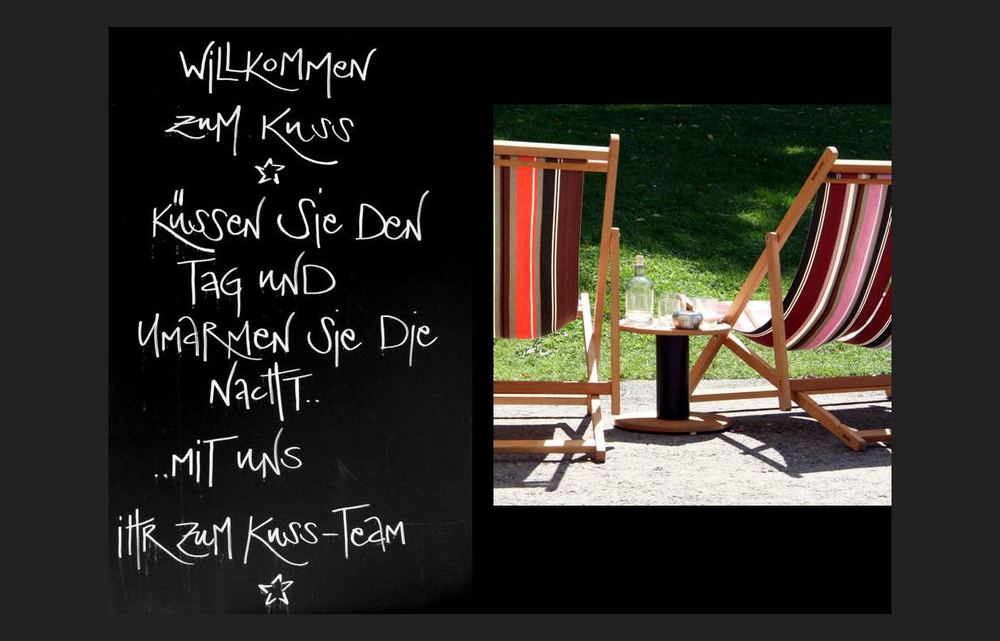 Willkommen
zum Kuss
Küssen Sie Den
Tag und
Umarmen Sie Die
Nacht..
..mit uns
ihr zum Kuss-Team